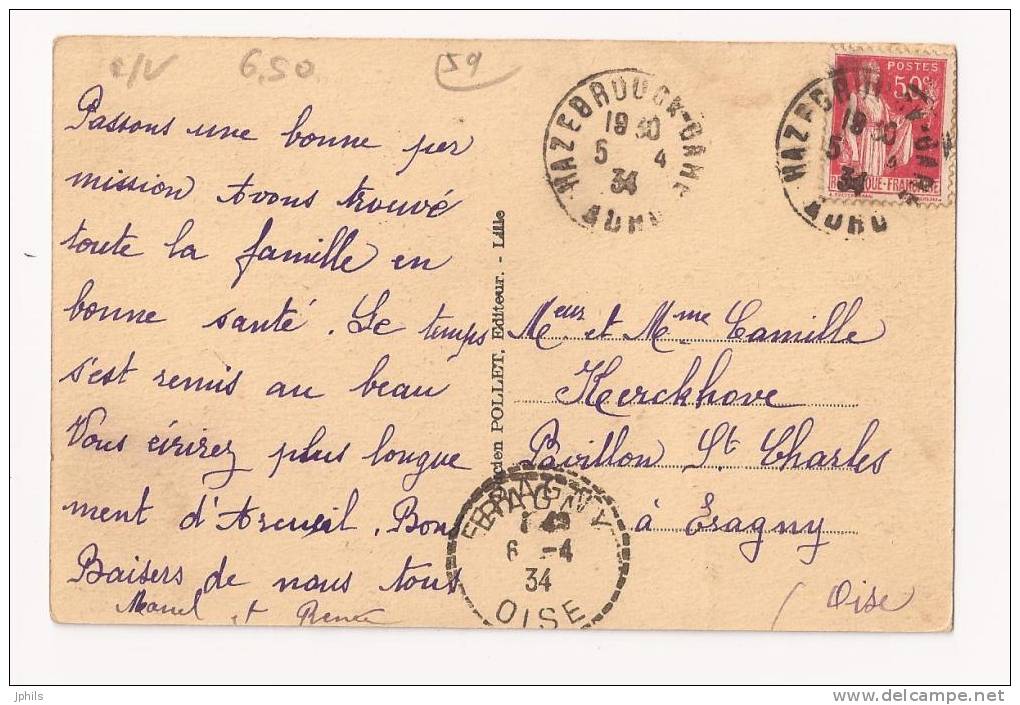 6,50
59
HAZEBROUCK-GARE
18 30
5 4
34
NORD
POSTES
50c
HAZEBROUCK-GARE
18 30
5 4
34
NORD
Passons une bonne per
mission Avons trouvé
toute la famille en
bonne santé. Le temps
s'est remis au beau
Vous écrirez plus longue
ment d'Arcueil. Bon
Baisers de nous tous
et Renée
cien POLLET, Editeur. - Lille
Meur et Mme Camille
Kerckhove
Pavillon St Charles
à Eragny
(Oise
ERAGNY
6 -4
34
OISE
jphils
delcampe.net